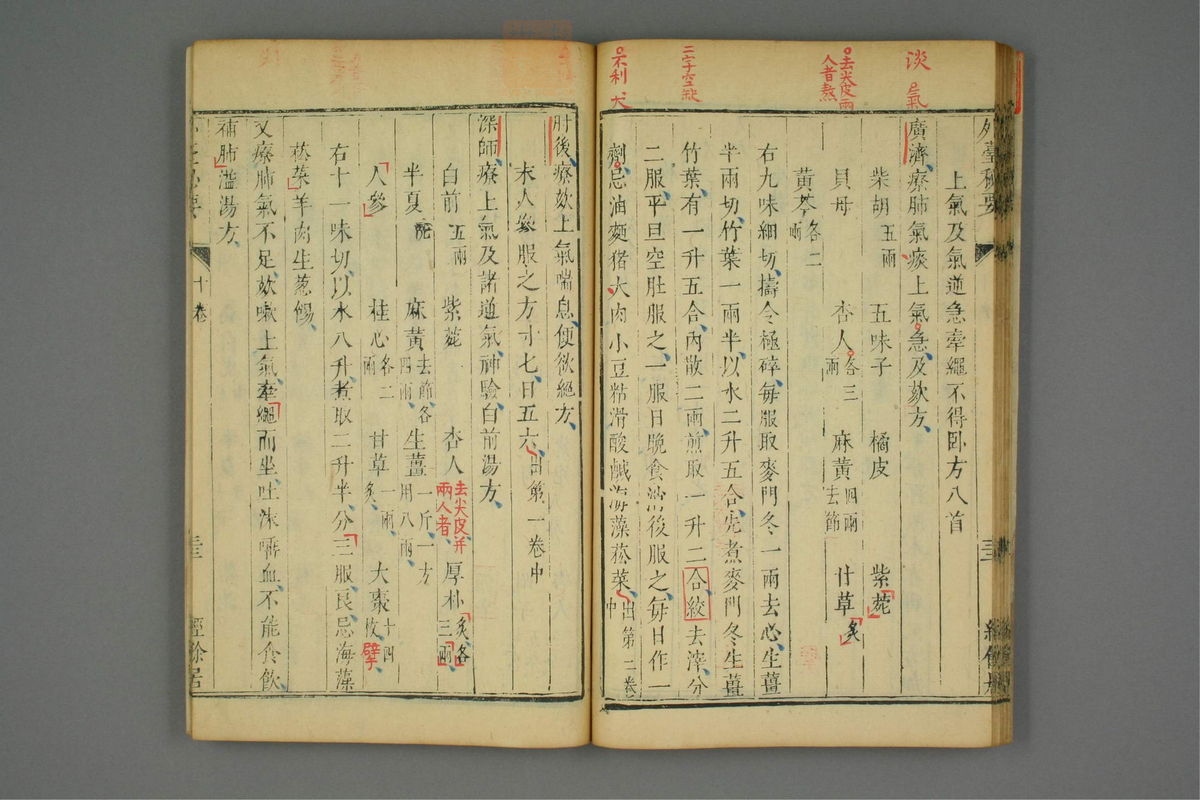 淡 氣
去尖皮兩
人者熬
二字空缺
不利 犬
外臺秘要
上氣及氣逆急牽繩不得臥方八首
廣濟療肺氣痰上氣急及欬方
柴胡五兩 五味子 橘皮 紫菀
貝母 杏人合三兩 麻黃四兩去節 甘草炙
黃芩各二兩
右九味細切擣令極碎每服取麥門冬一兩去心生薑
半兩切竹葉一兩半以水二升五合先煮麥門冬生薑
竹葉有一升五合內散二兩煎取一升二合絞去滓分
二服平旦空肚服之一服日晚食消後服之每日作一
劑忌油麵猪大肉小豆粘滑酸鹹海藻菘菜出第二卷中
肘後療欬上氣喘息便欲絕方
末人參服之方寸匕日五六出第一卷中
深師療上氣及諸逆氣神驗白前湯方
白前五兩 紫菀 杏人去尖皮并兩人者 厚朴炙各三兩
半夏洗 麻黃去節各四兩 生薑一斤一方用八兩
人參 桂心各二兩 甘草一兩炙 大棗十四枚擘
右十一味切以水八升煮取二升半分三服良忌海藻
菘菜羊肉生葱餳
又療肺氣不足欬嗽上氣牽繩而坐吐沫唾血不能食飲
補肺溢湯方
十卷
三三
經餘居